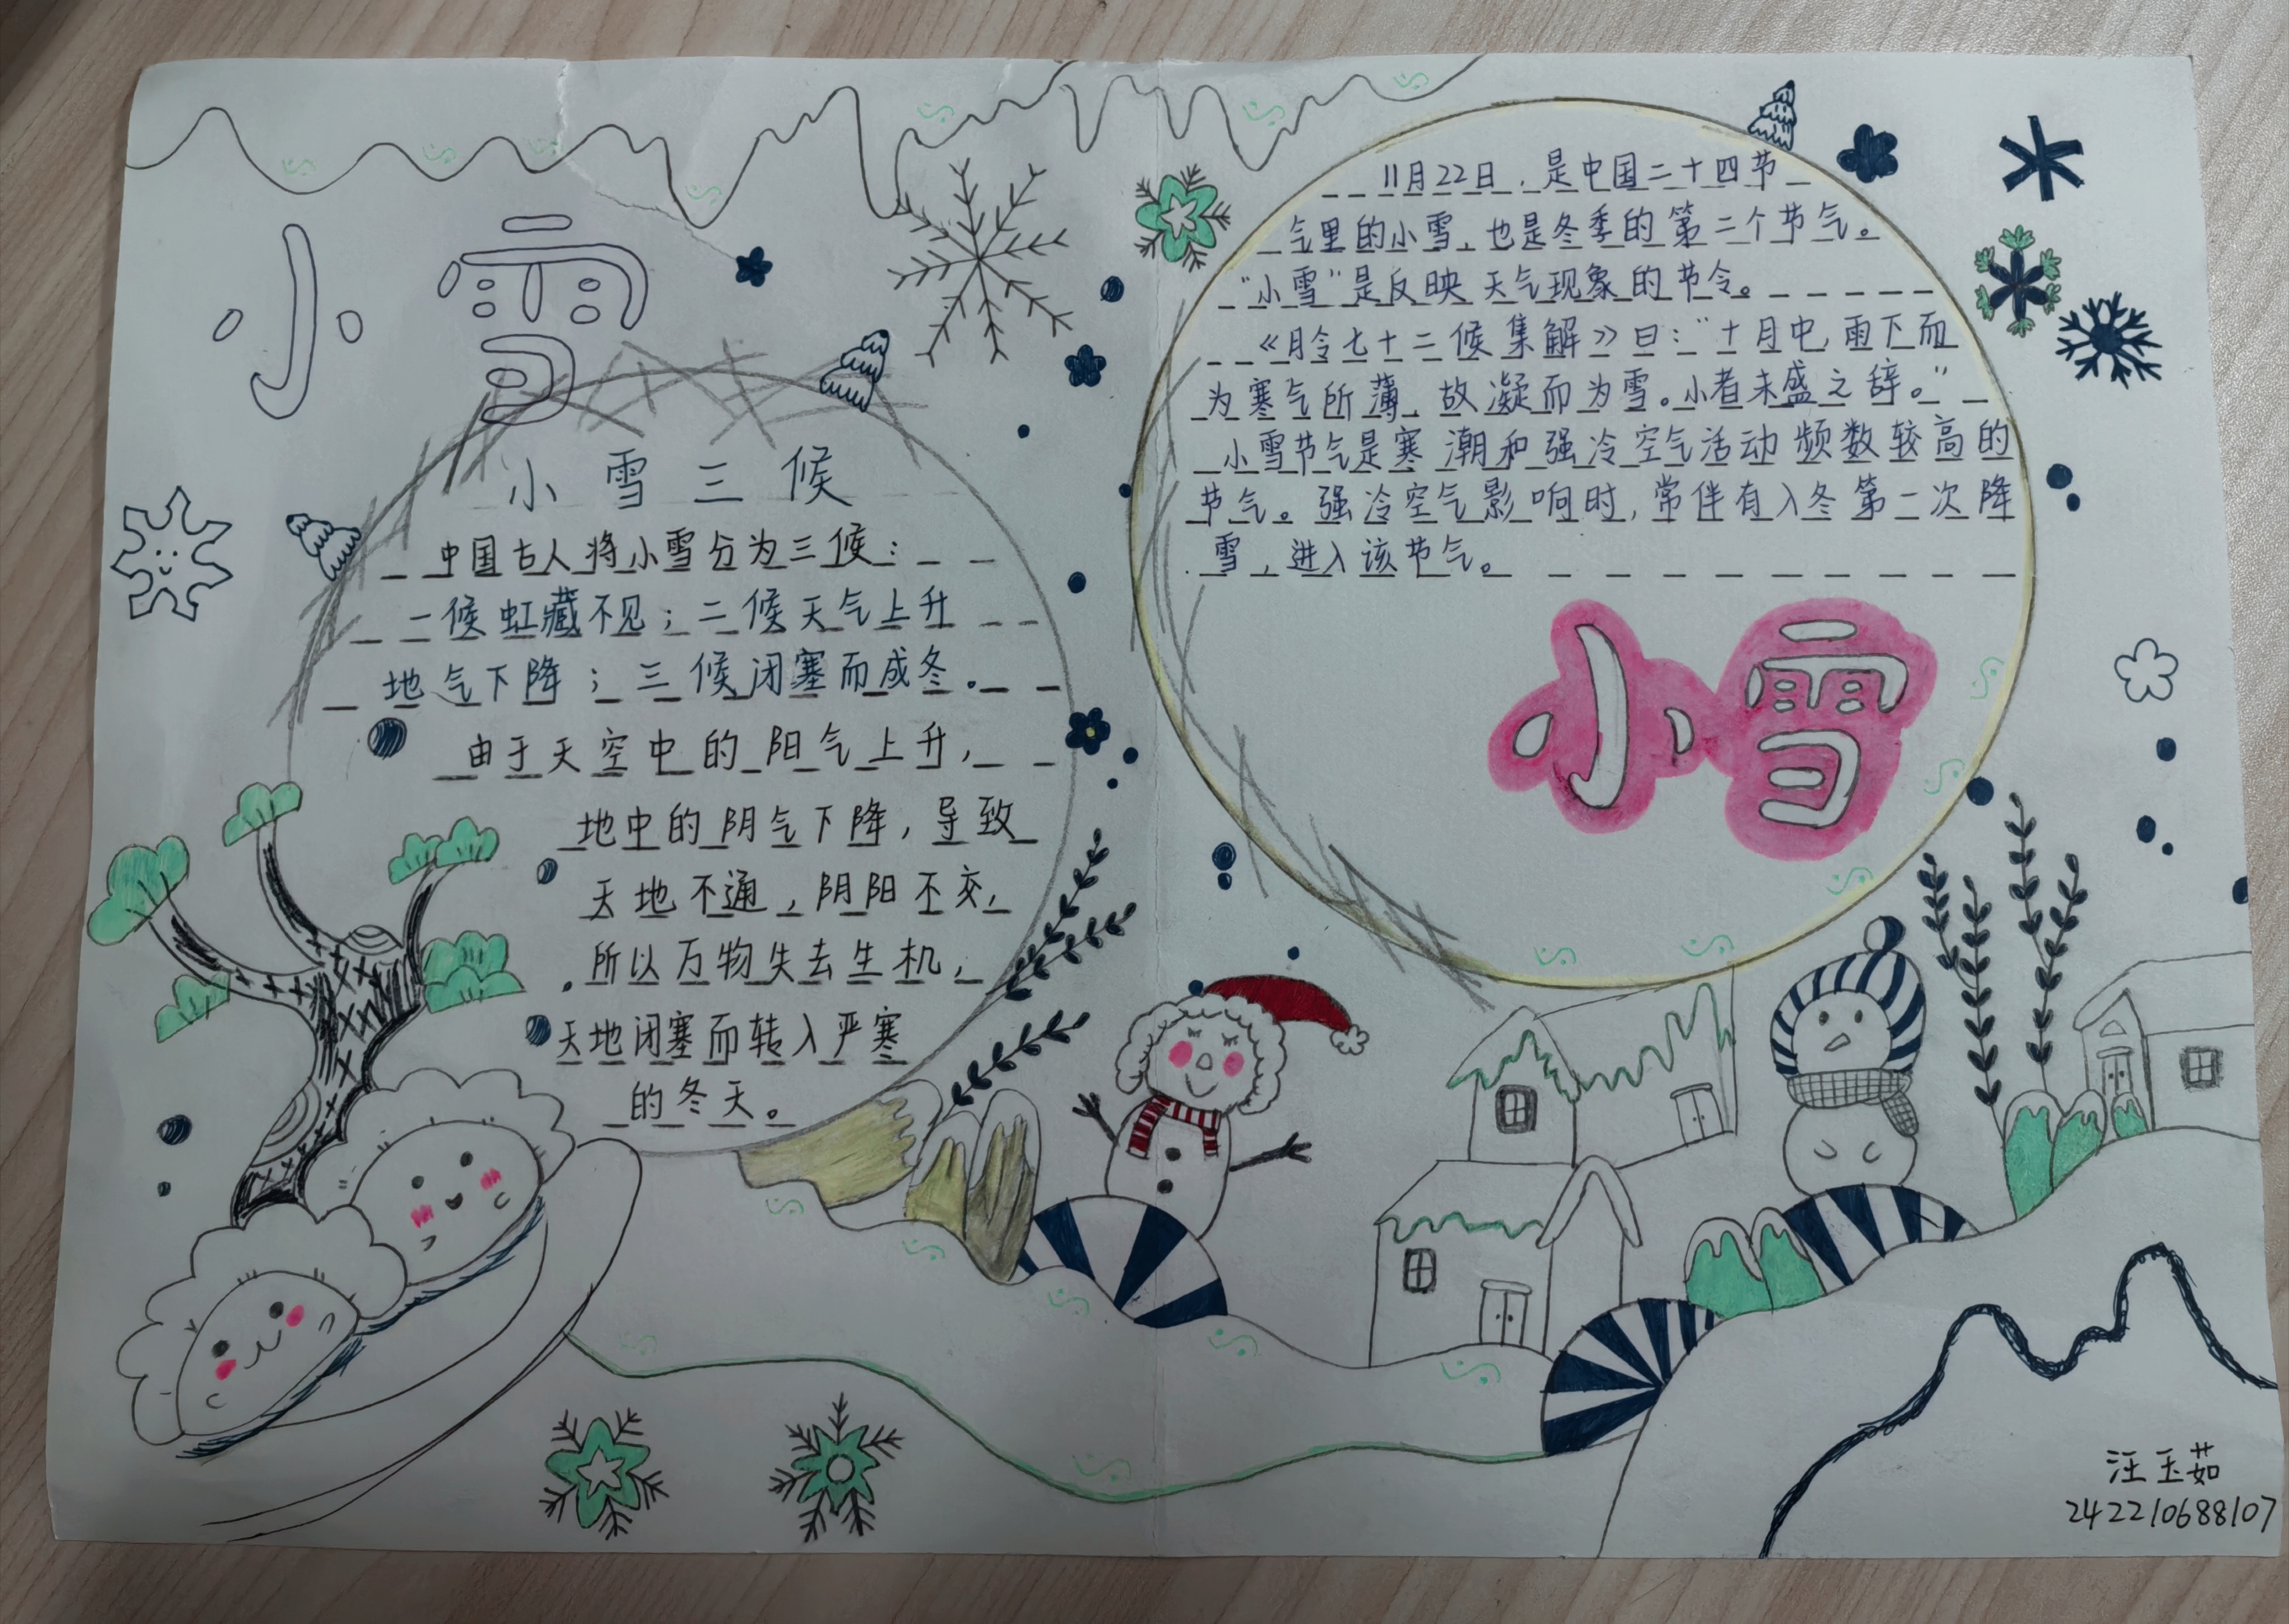 小雪
小雪三候
中国古人将小雪分为三候：
一候虹藏不见；二候天气上升
地气下降；三候闭塞而成冬。
由于天空中的阳气上升，
地中的阴气下降，导致
天地不通，阴阳不交，
所以万物失去生机，
天地闭塞而转入严寒
的冬天。
11月22日，是中国二十四节
气里的小雪，也是冬季的第二个节气。
“小雪”是反映天气现象的节令。
《月令七十二候集解》曰：“十月中，雨下而
为寒气所薄，故凝而为雪。小者未盛之辞。”
小雪节气是寒潮和强冷空气活动频数较高的
节气。强冷空气影响时，常伴有入冬第二次降
雪，进入该节气。
小雪
汪玉茹
242210688107